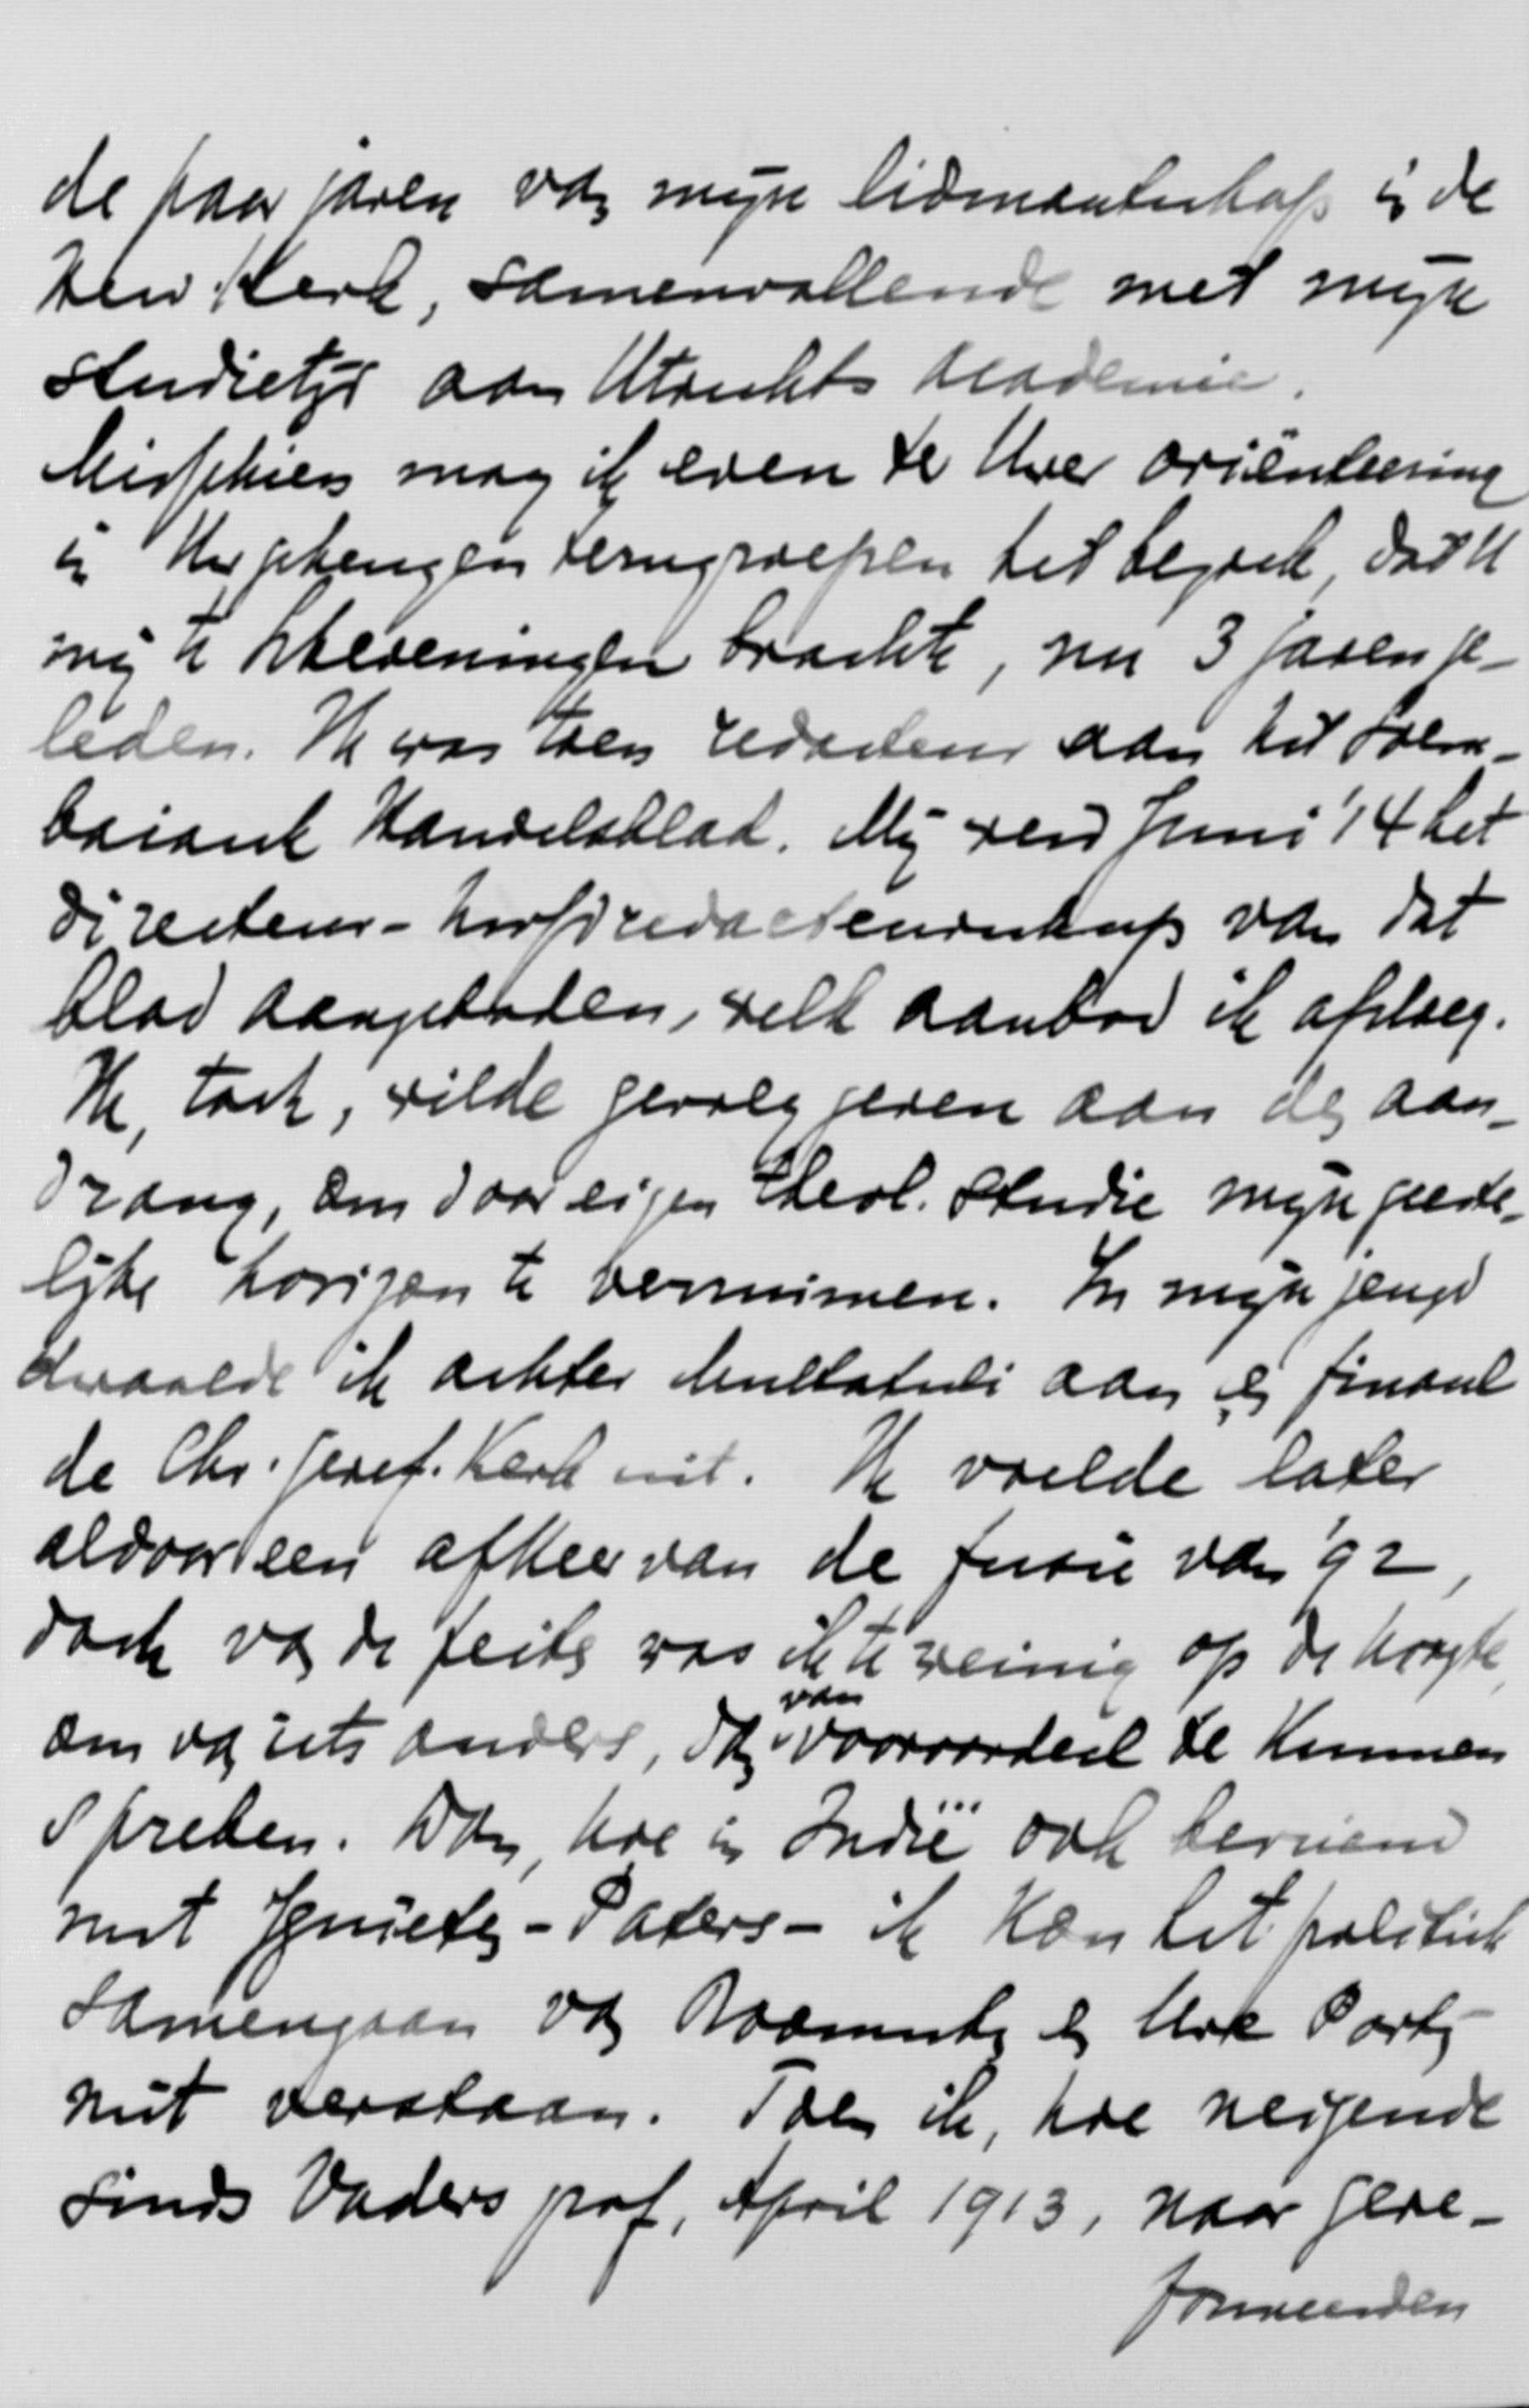 de paar jaren van mijn lidmaatschap in de
Herv. Kerk, samenvallende met mijn
studietijd aan Utrechts Academie.
Misschien mag ik even te Uwer oriënteering
in Uw geheugen terugroepen het bezoek, dat U
mij te Scheveningen bracht, nu 3 jaren ge-
leden. Ik was toen redacteur aan het Soera-
baiasch Handelsblad. Mij werd Juni '14 het
directeur-hoofdredacteurschap van dat
blad aangeboden, welk aanbod ik afsloeg.
Ik, toch, wilde gevolg geven aan den aan-
drang, om door eigen theol. studie mijn geeste-
lijke horizon te verruimen. In mijn jeugd
dwaalde ik achter Multatuli aan en finaal
de Chr. Geref. Kerk uit. Ik voelde later
aldoor een afkeer van de fusie van '92,
doch van de feiten was ik te weinig op de hoogte,
om van iets anders, dan van vooroordeel te kunnen
spreken. Dan, hoe in Indië ook bevriend
met Jezuieten-Paters - ik kon het politiek
samengaan van Roomschen en Uwe Partij
niet verstaan. Toen ik, hoe neigende
sinds Vaders graf, April 1913, naar Gere-
formeerden